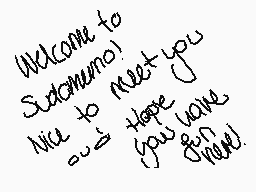 Welcome to
Sudomemo!
Nice to meet you
Hope
you have
fun
here!